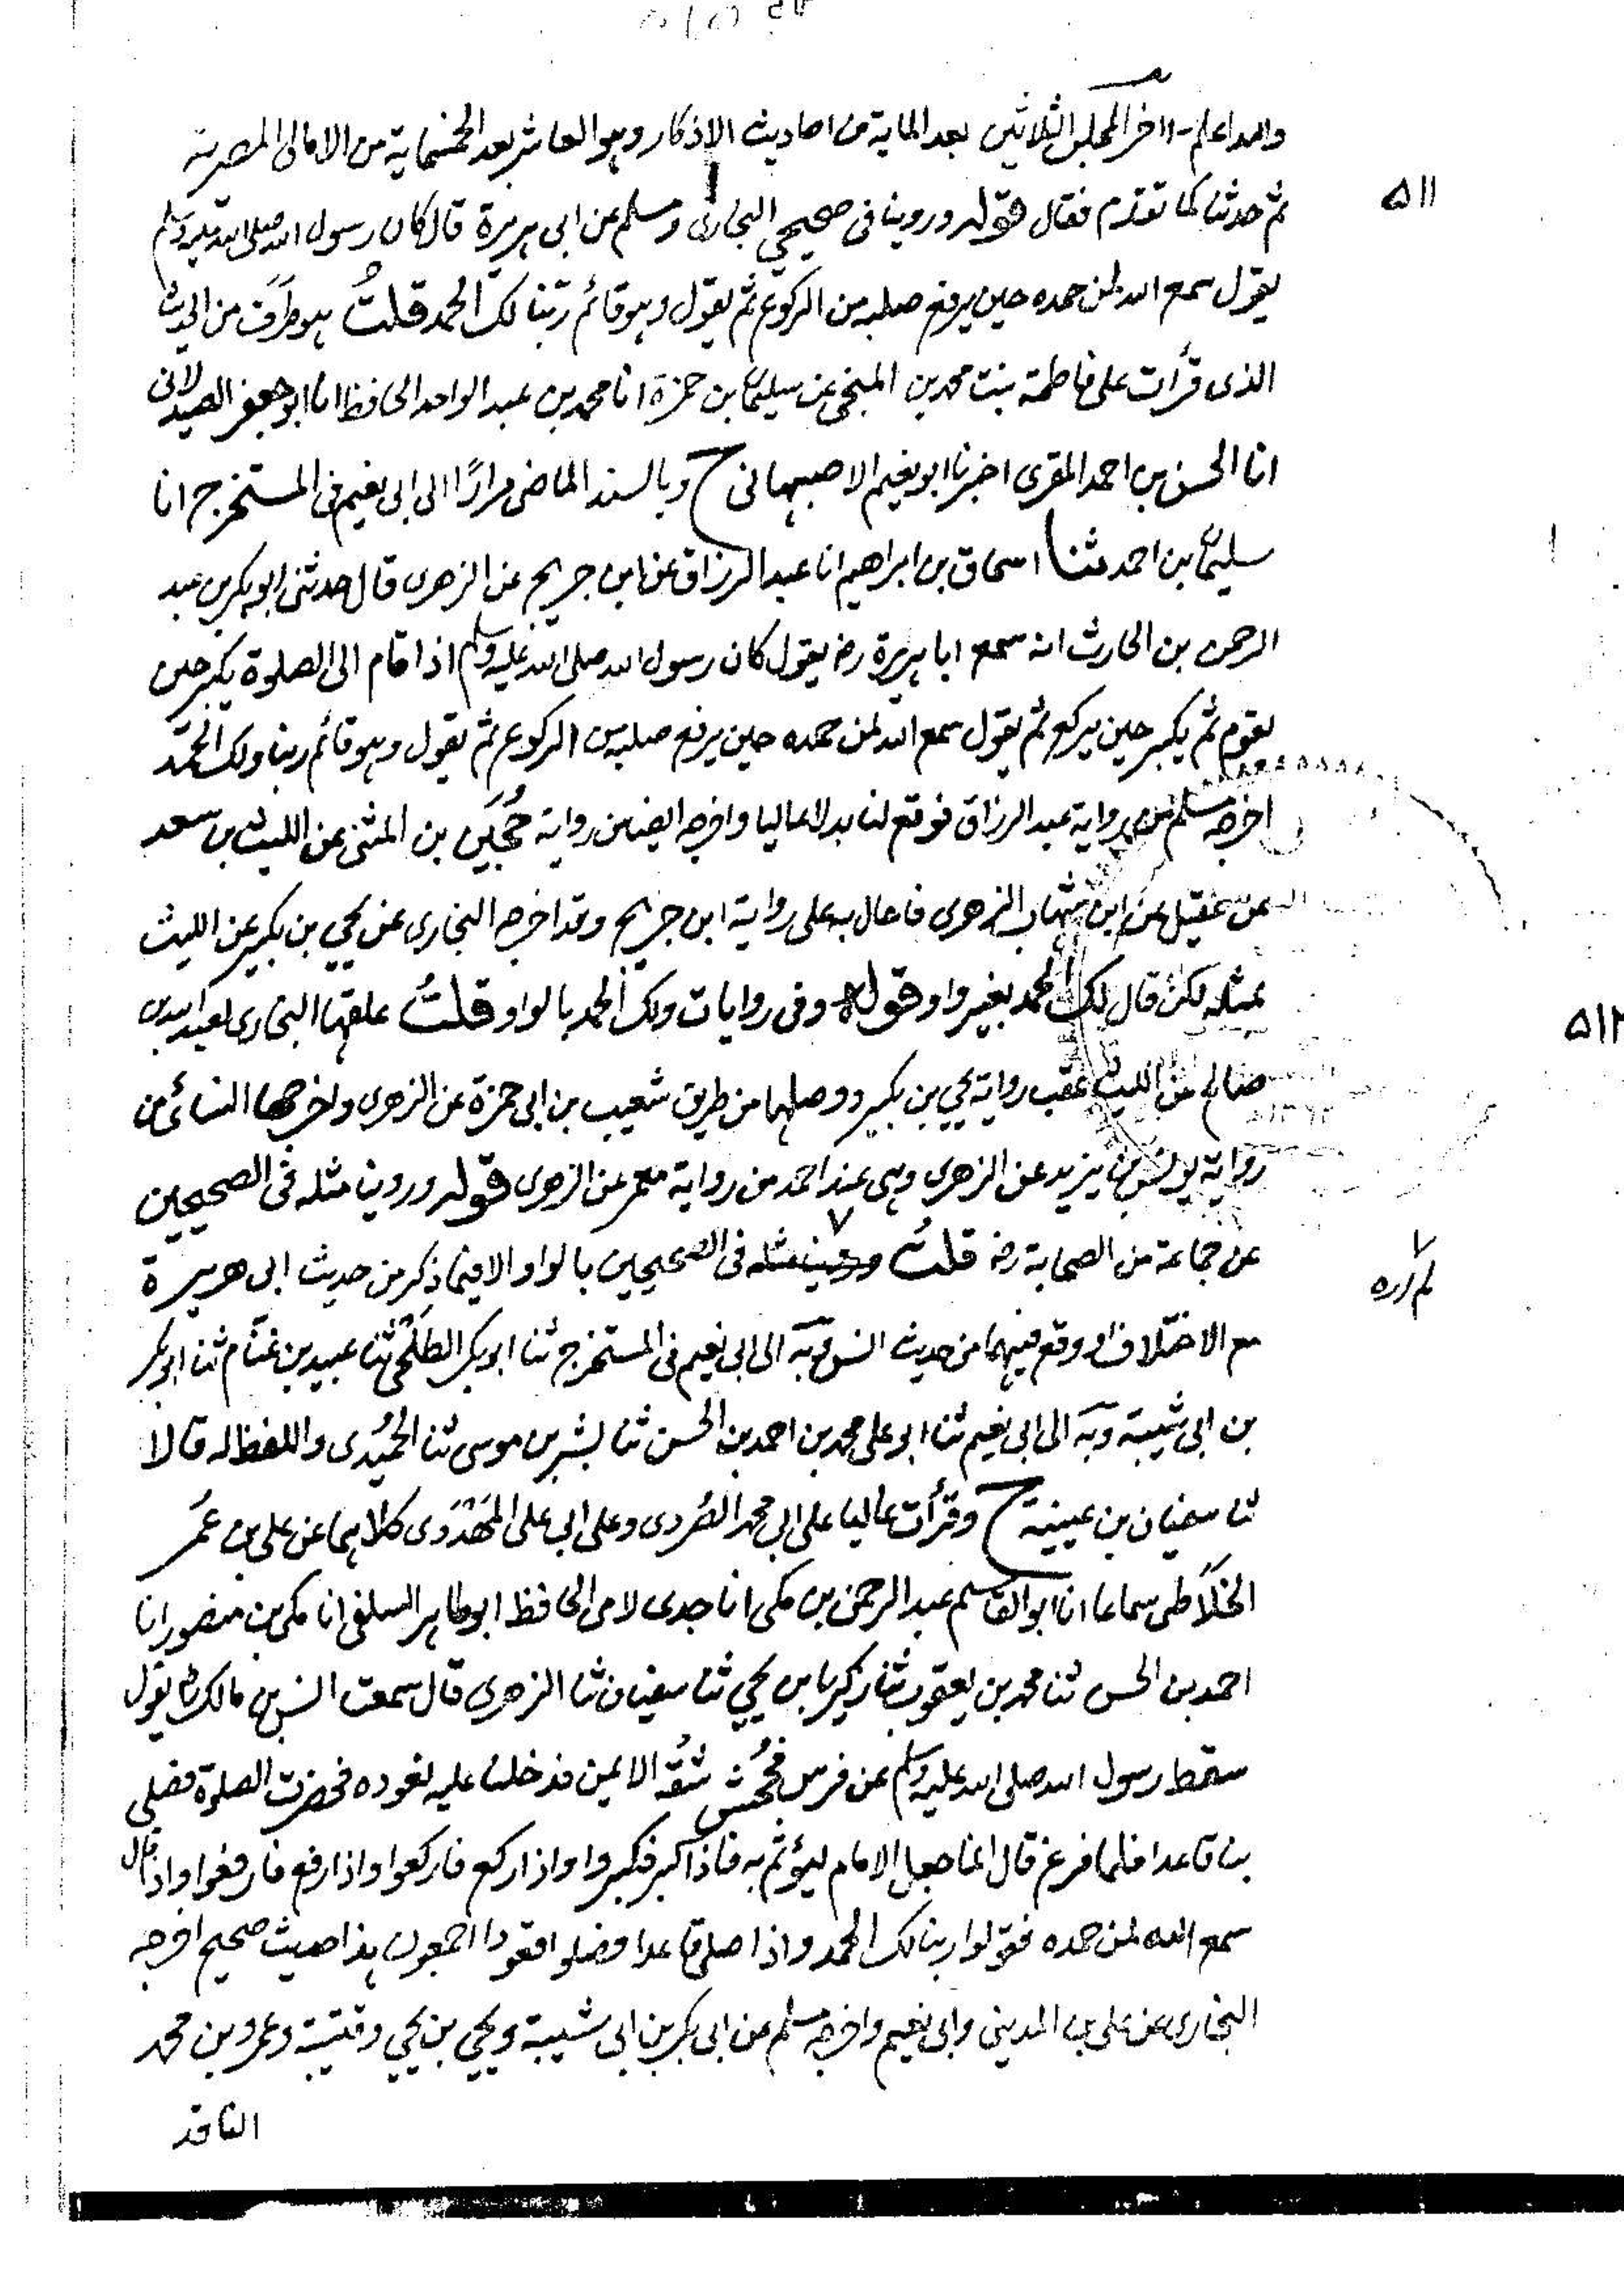 والله اعلم - اخر المجلس الثلاثين بعد الماية من احاديث الاذكار وهو العاشر بعد الخمسماية من الامالى المصرية
٥١١
ثم حدثنا كما تقدم فقال قوله وروينا فى صحيحى البخارى ومسلم عن ابى هريرة قال كان رسول الله صلى الله عليه وسلم
يقول سمع الله لمن حمده حين يرفع صلبه من الركوع ثم يقول وهو قائم ربنا لك الحمد قلتُ هو طرف من الحديث
الذى قرأت على فاطمة بنت محمد بن المنجى عن سليمان بن حمزة انا محمد بن عبد الواحد الحافظ انا ابو جعفر الصيدلانى
انا الحسن بن احمد المقرى اخبرنا ابو نعيم الاصبهانى ح وبالسند الماضى مرارًا الى ابى نعيم فى المستخرج انا
سليمان بن احمد ثنا اسحاق بن ابراهيم انا عبد الرزاق عن ابن جريج عن الزهرى قال حدثنى ابو بكر بن عبد
الرحمن بن الحارث انه سمع ابا هريرة رضـ يقول كان رسول الله صلى الله عليه وسلم اذا قام الى الصلوة يكبر حين
يقوم ثم يكبر حين يركع ثم يقول سمع الله لمن حمده حين يرفع صلبه من الركوع ثم يقول وهو قائم ربنا ولك الحمد
اخرجه مسلم من رواية عبد الرزاق فوقع لنا بدلا عاليا واخرجه ايضا من رواية حُجَين بن المثنى عن الليث بن سعد
عن عقيل عن ابن شهاب الزهرى فاحال به على رواية ابن جريج وقد اخرجه البخارى عن يحيى بن بكير عن الليث
بمثله لكن قال لك الحمد بغير واو قوله وفى روايات ولك الحمد بالواو قلتُ علقها البخارى لعبد الله بن
٥١٢
صالح عن الليث عقب رواية يحيى بن بكير ووصلها من طريق شعيب بن ابى حمزة عن الزهرى واخرجها النسائى من
رواية يونس بن يزيد عن الزهرى وهى عند احمد من رواية معمر عن الزهرى قوله وروينا مثله فى الصحيحين
عن جماعة من الصحابة رضـ قلتُ مثله فى الصحيحين بالواو الا فيما ذكر من حديث ابى هريرة
لم اره
مع الاختلاف ووقع فيهما من حديث انس وبه الى ابى نعيم فى المستخرج ثنا ابو بكر الطلحى ثنا عبيد بن غنّام ثنا ابو بكر
بن ابى شيبة وبه الى ابى نعيم ثنا ابو على محمد بن احمد بن الحسن ثنا بشر بن موسى ثنا الحميدى واللفظ له قالا
ثنا سفيان بن عيينة ح وقرأت عاليا على ابى محمد الصُردى وعلى ابى على المَهْدَوى كلاهما عن على بن عمر
الخلاطى سماعا انا ابو القاسم عبد الرحمن بن مكى انا جدى لامى الحافظ ابو طاهر السلفى انا مكى بن منصور انا
احمد بن الحسن ثنا محمد بن يعقوب ثنا زكريا بن يحيى ثنا سفيان ثنا الزهرى قال سمعت انس بن مالك رضـ يقول
سقط رسول الله صلى الله عليه وسلم عن فرس فجُحش شقّه الايمن فدخلنا عليه نعوده فحضرت الصلوة فصلى
بنا قاعدا فلما فرغ قال انما جعل الامام ليؤتم به فاذا كبر فكبروا واذا ركع فاركعوا واذا رفع فارفعوا واذا قال
سمع الله لمن حمده فقولوا ربنا لك الحمد واذا صلى قاعدا فصلوا قعودا اجمعون هذا حديث صحيح اخرجه
البخارى عن على بن المدينى وابى نعيم واخرجه مسلم عن ابى بكر بن ابى شيبة ويحيى بن يحيى وقتيبة وعمرو بن محمد
الناقد